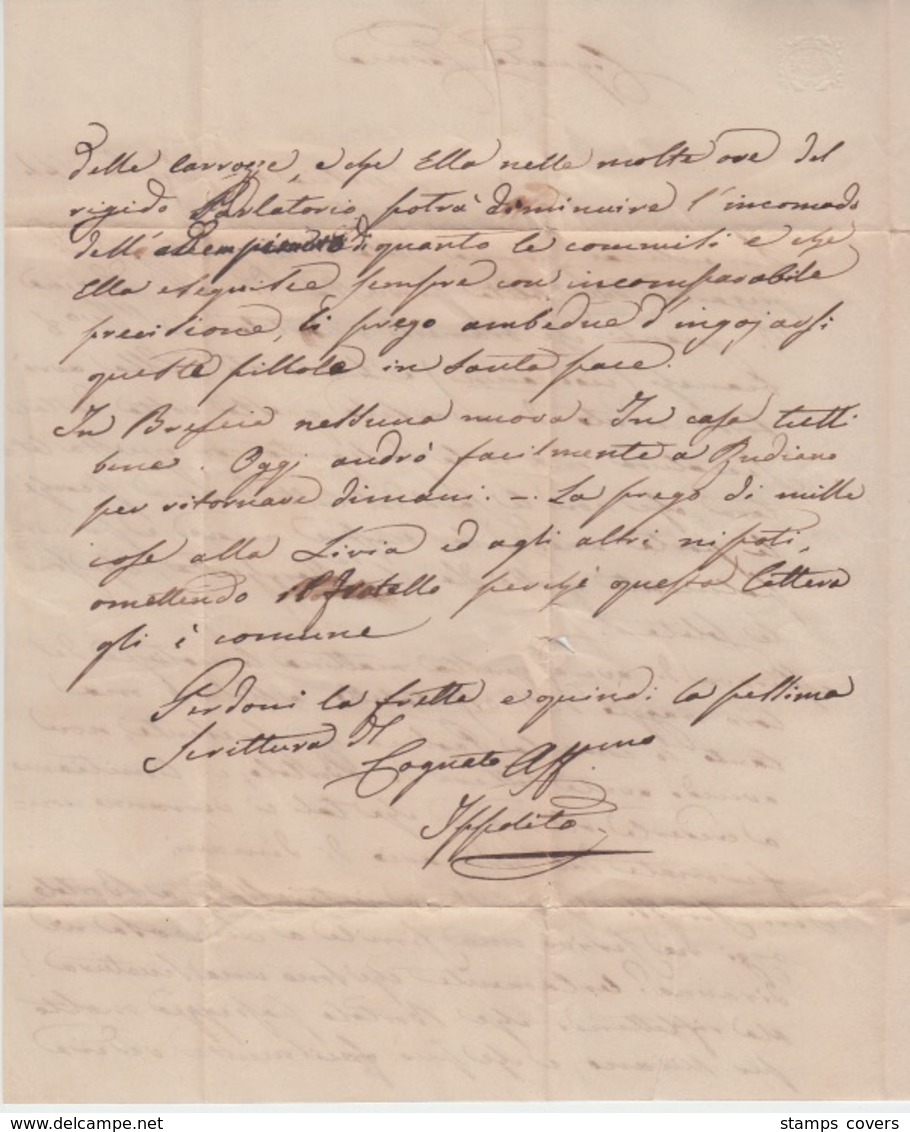 delle carrozze, e che Ella nelle molte ore del
rigido Parlatorio potrà diminuire l'incomodo
dell' di quanto le commisi e che
Ella eseguisce sempre con incomparabile
precisione, li prego ambedue d'ingojarsi
queste pillole in santa pace.
In Brescia nessuna nuova. In casa tutti
bene. Oggi andrò facilmente a Rudiano
per ritornare dimani. - La prego di mille
cose alla Livia ed agli altri nipoti,
omettendo il fratello perchè questa lettera
gli è comune
Perdoni la fretta e quindi la pessima
Scrittura di
Cognato Affmo
Ippolito
www.delcampe.net
stamps covers